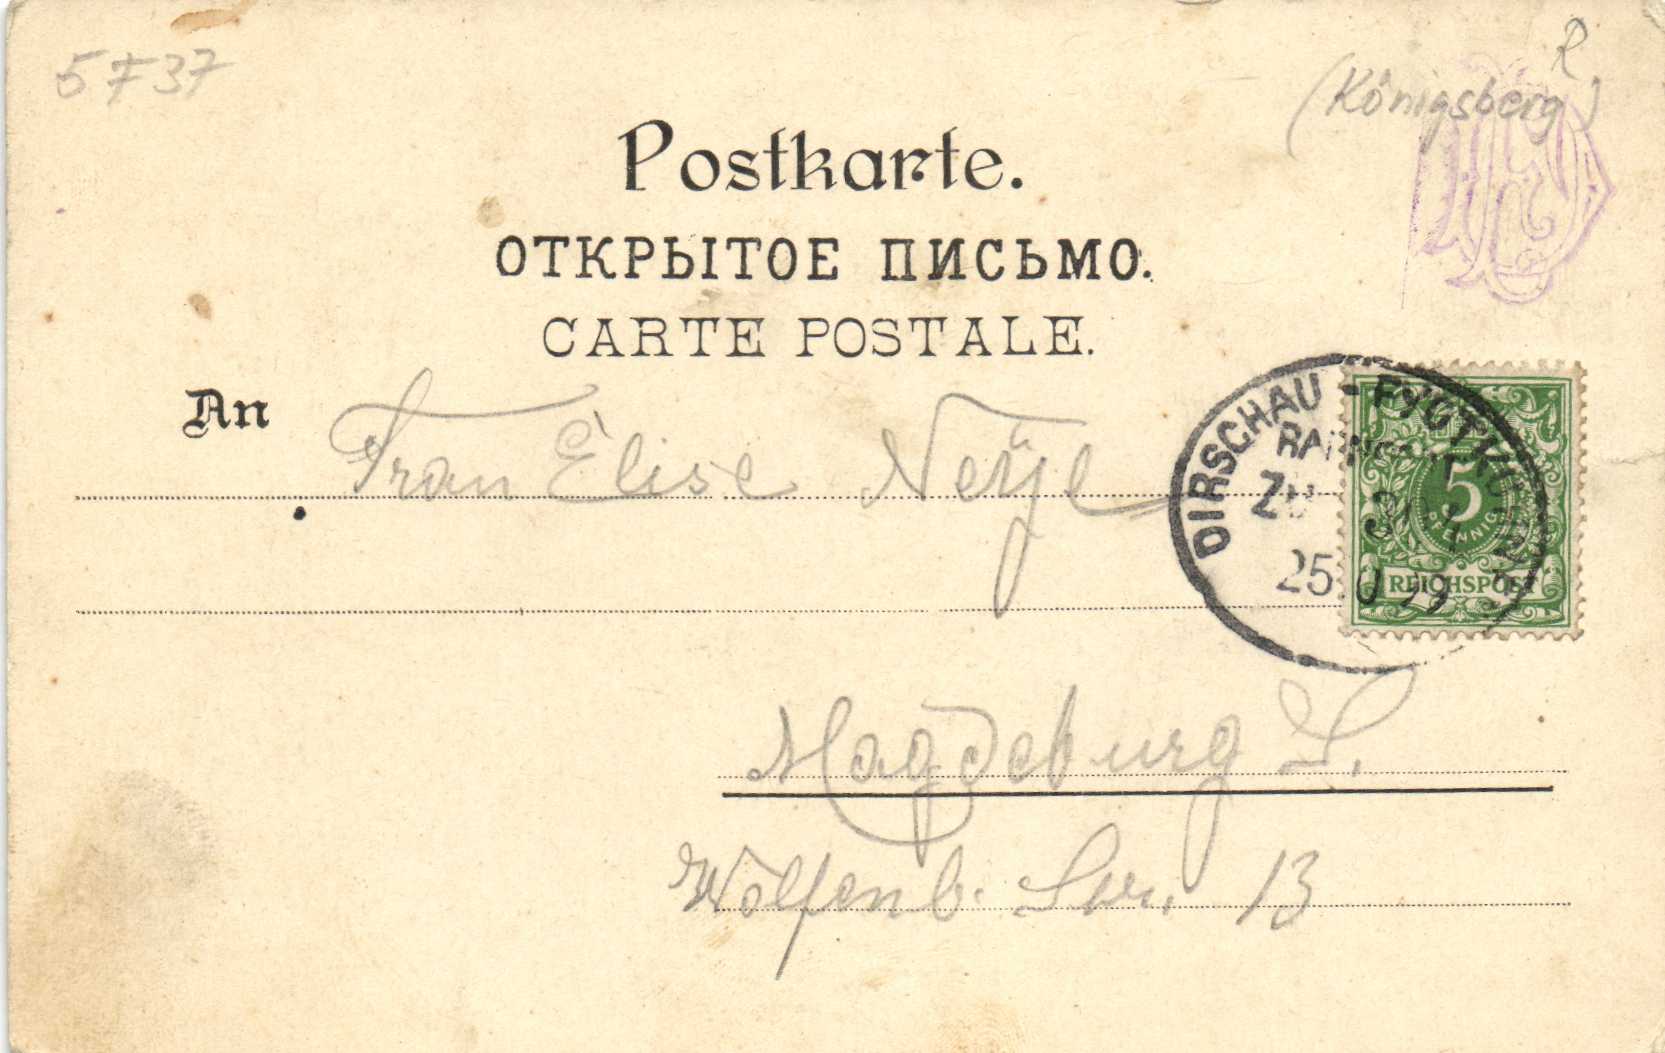 5 F 37
R
(Königsberg)
Postkarte.
ОТКРЫТОЕ ПИСЬМО.
CARTE POSTALE.
An Frau Elise
DIRSCHAU - EYDTKUHNEN
5
PFENNIG
REICHSPOST
25
Magdeburg S.
Wolfenb. Str. 13